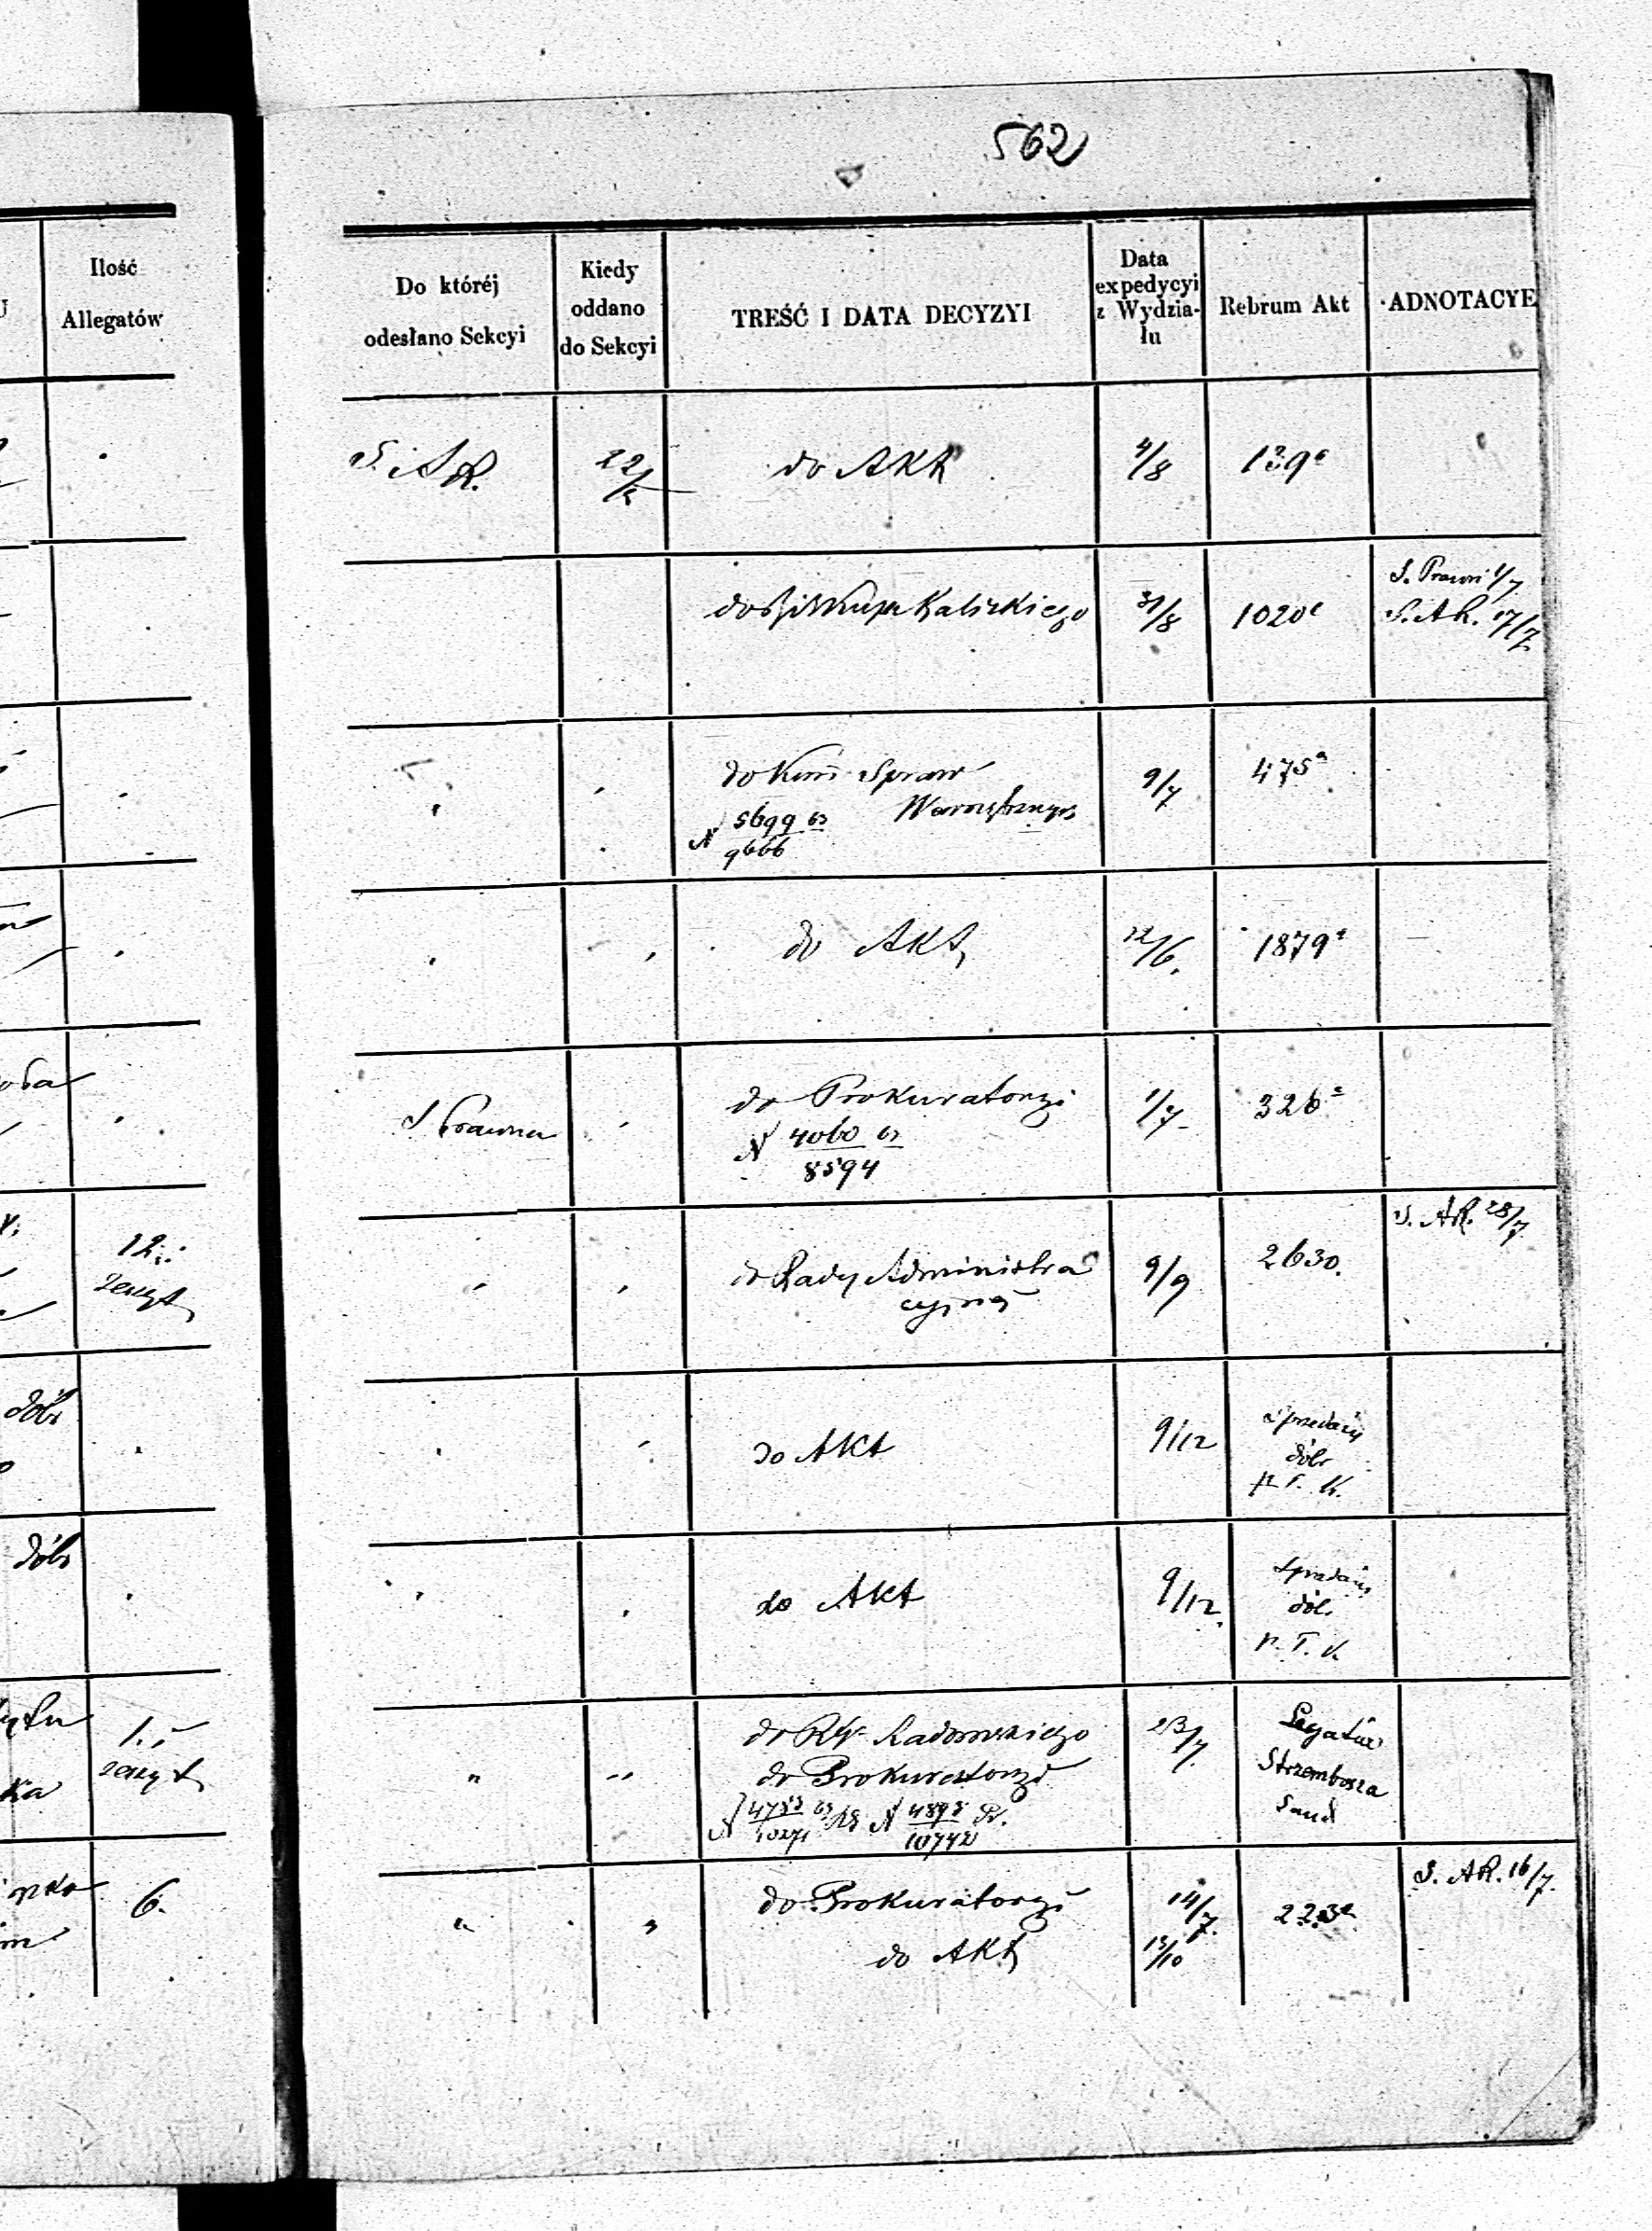 562
Ilość
Allegatów
Do któréj
odesłano Sekcyi
Kiedy
oddano
do Sekcyi
TREŚĆ I DATA DECYZYI
Data
expedycyi
z Wydzia-
łu
Rebrum Akt
ADNOTACYE
S. AR.
22/5
do Akt
4/8
139c
do Biskupa Kaliskiego
31/8
1020c
S. Prawn 1/7
S. AR. 17/7
do Kom Spraw
Wewnętrznych
N 5699 63
9666
9/7
475a
do Akt
12/6.
1879
S Prawna
do Prokuratoryi
N 4060 63
8594
1/7
326
12
zeszyt
do Rady Administra
cyjnej
9/9
2630.
S. AR. 28/7
dóbr
do Akt
9/12
sprzedaży
dóbr
p T. K.
dóbr
do Akt
9/12.
sprzedaży
dób.
p. T. K.
1.
zeszyt
ka
" "
do Rzą Radomskiego
do Prokuratoryi
N 4755 63 N 4895
10271 10742
23/7.
Legatur
Strzembosza
Sand
6.
" "
do Prokuratoryi
do Akt
14/7.
13/10
223
S. AR. 16/7.